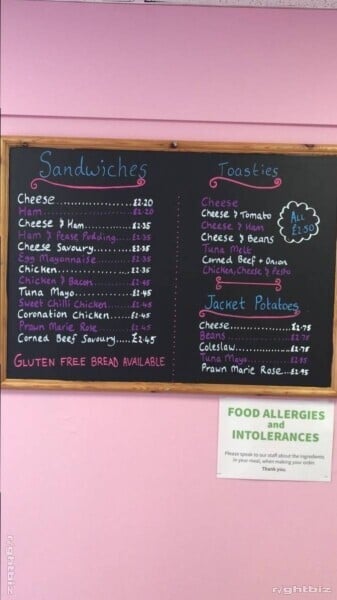 Sandwiches
Cheese....................£2.20
Ham.......................£2.20
Cheese & Ham..........£2.35
Ham & Pease Pudding...£2.35
Cheese Savoury........£2.35
Egg Mayonnaise........£2.35
Chicken...................£2.35
Chicken & Bacon.......£2.45
Tuna Mayo..............£2.45
Sweet Chilli Chicken....£2.45
Coronation Chicken.....£2.45
Prawn Marie Rose......£2.45
Corned Beef Savoury....£2.45
GLUTEN FREE BREAD AVAILABLE
Toasties
Cheese
Cheese & Tomato
Cheese & Ham
Cheese & Beans
Tuna Melt
Corned Beef & Onion
Chicken, Cheese & Pesto
ALL
£2.50
Jacket Potatoes
Cheese..................£2.75
Beans...................£2.75
Coleslaw...............£2.75
Tuna Mayo............£2.95
Prawn Marie Rose...£2.95
FOOD ALLERGIES
and
INTOLERANCES
Please speak to our staff about the ingredients
in your meal, when making your order.
Thank you.
rightbiz
rightbiz